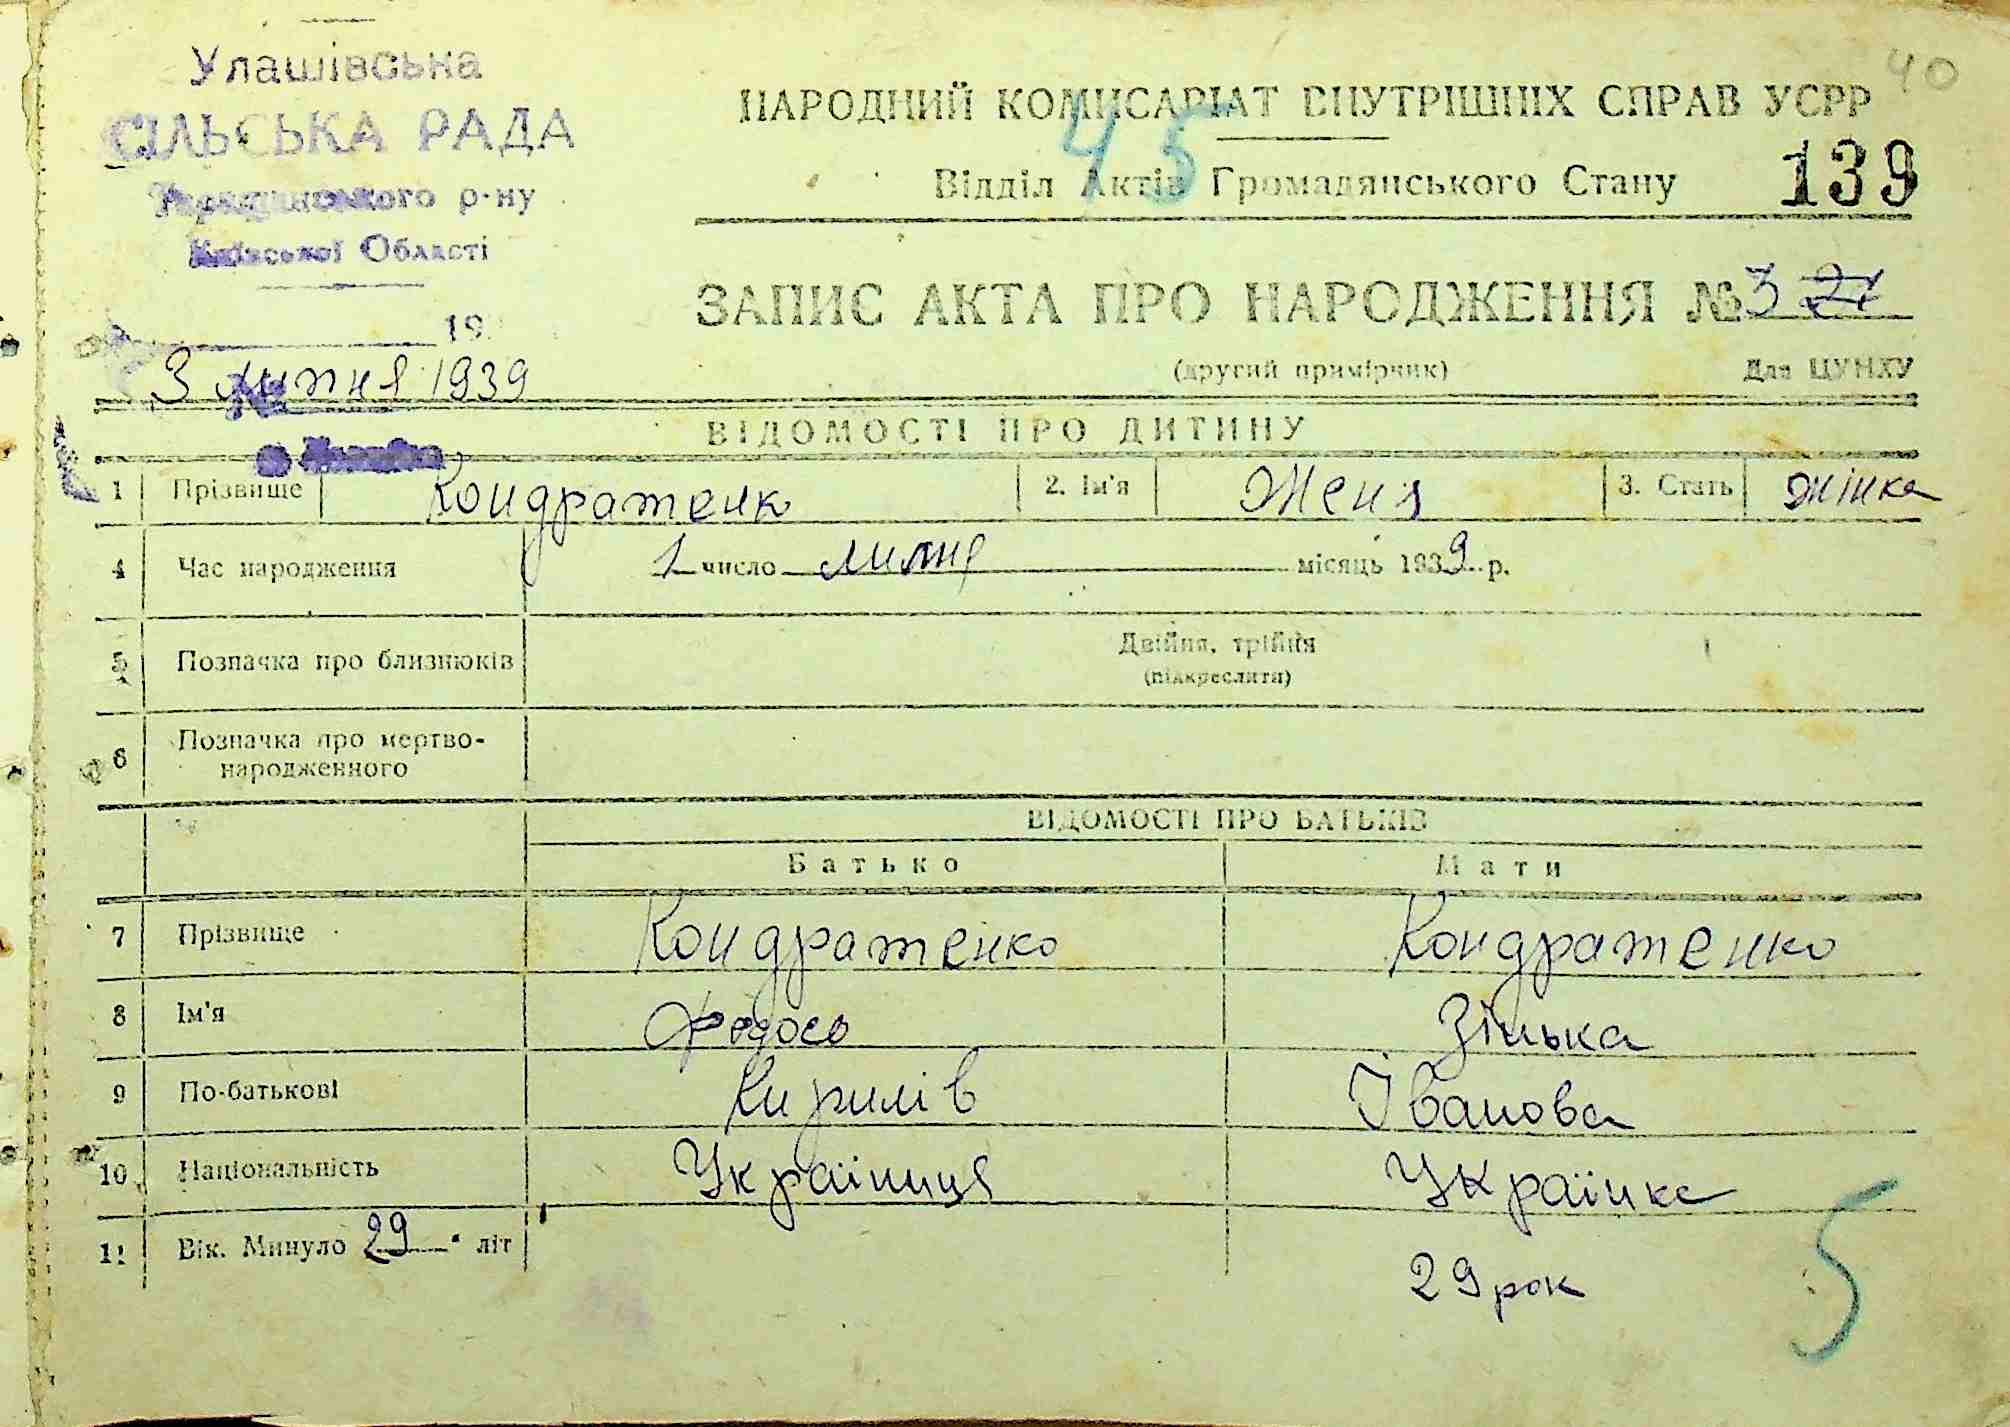 40
Улашівська
СІЛЬСЬКА РАДА
р-ну
Київської Області
19
3 липня 1939
НАРОДНИЙ КОМИСАРІАТ ВНУТРІШНІХ СПРАВ УСРР
45
Відділ Актів Громадянського Стану
139
ЗАПИС АКТА ПРО НАРОДЖЕННЯ № 3 21
(другий примірник) Для ЦУНХУ
ВІДОМОСТІ ПРО ДИТИНУ
1 Прізвище Кондратенк 2. Ім'я Женя 3. Стать жінка
4 Час народження 1 число липня місяць 1939 р.
5 Позначка про близнюків Двійня, трійня
(підкреслити)
6 Позначка про мертво-
народженного
ВІДОМОСТІ ПРО БАТЬКІВ
Батько Мати
7 Прізвище Кондратенко Кондратенко
8 Ім'я Федось Зінька
9 По-батькові Кирилів Іванова
10 Національність Українця Українка
11 Вік. Минуло 29 літ 29 рок
5